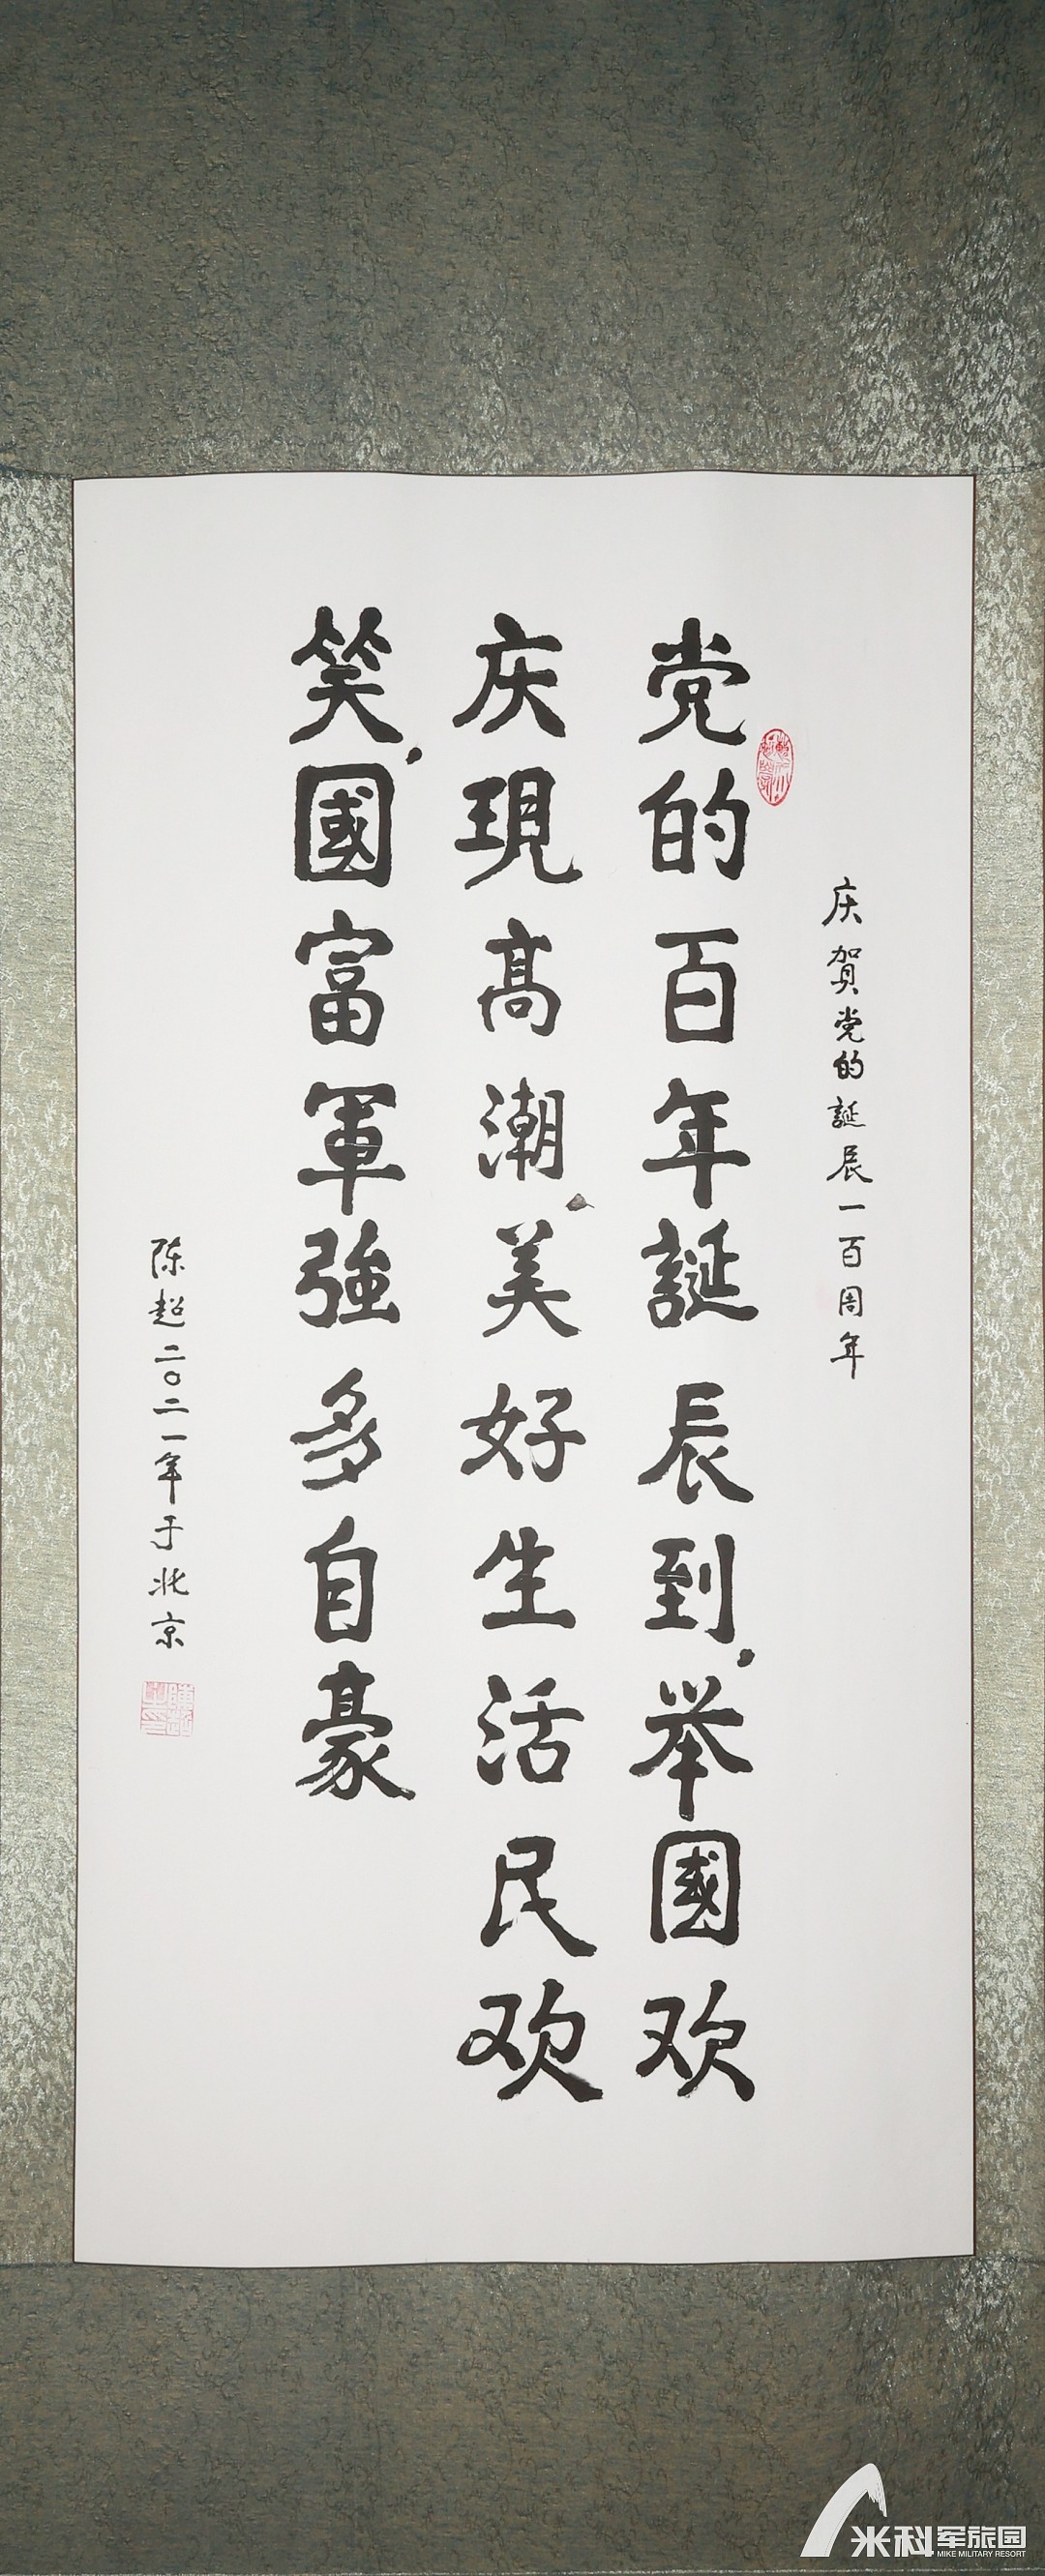 庆贺党的誕辰一百周年
党的百年誕辰到,举國欢
庆現高潮,美好生活民欢
笑,國富軍強多自豪
陈超二〇二一年于北京
米科军旅园
MIKE MILITARY RESORT